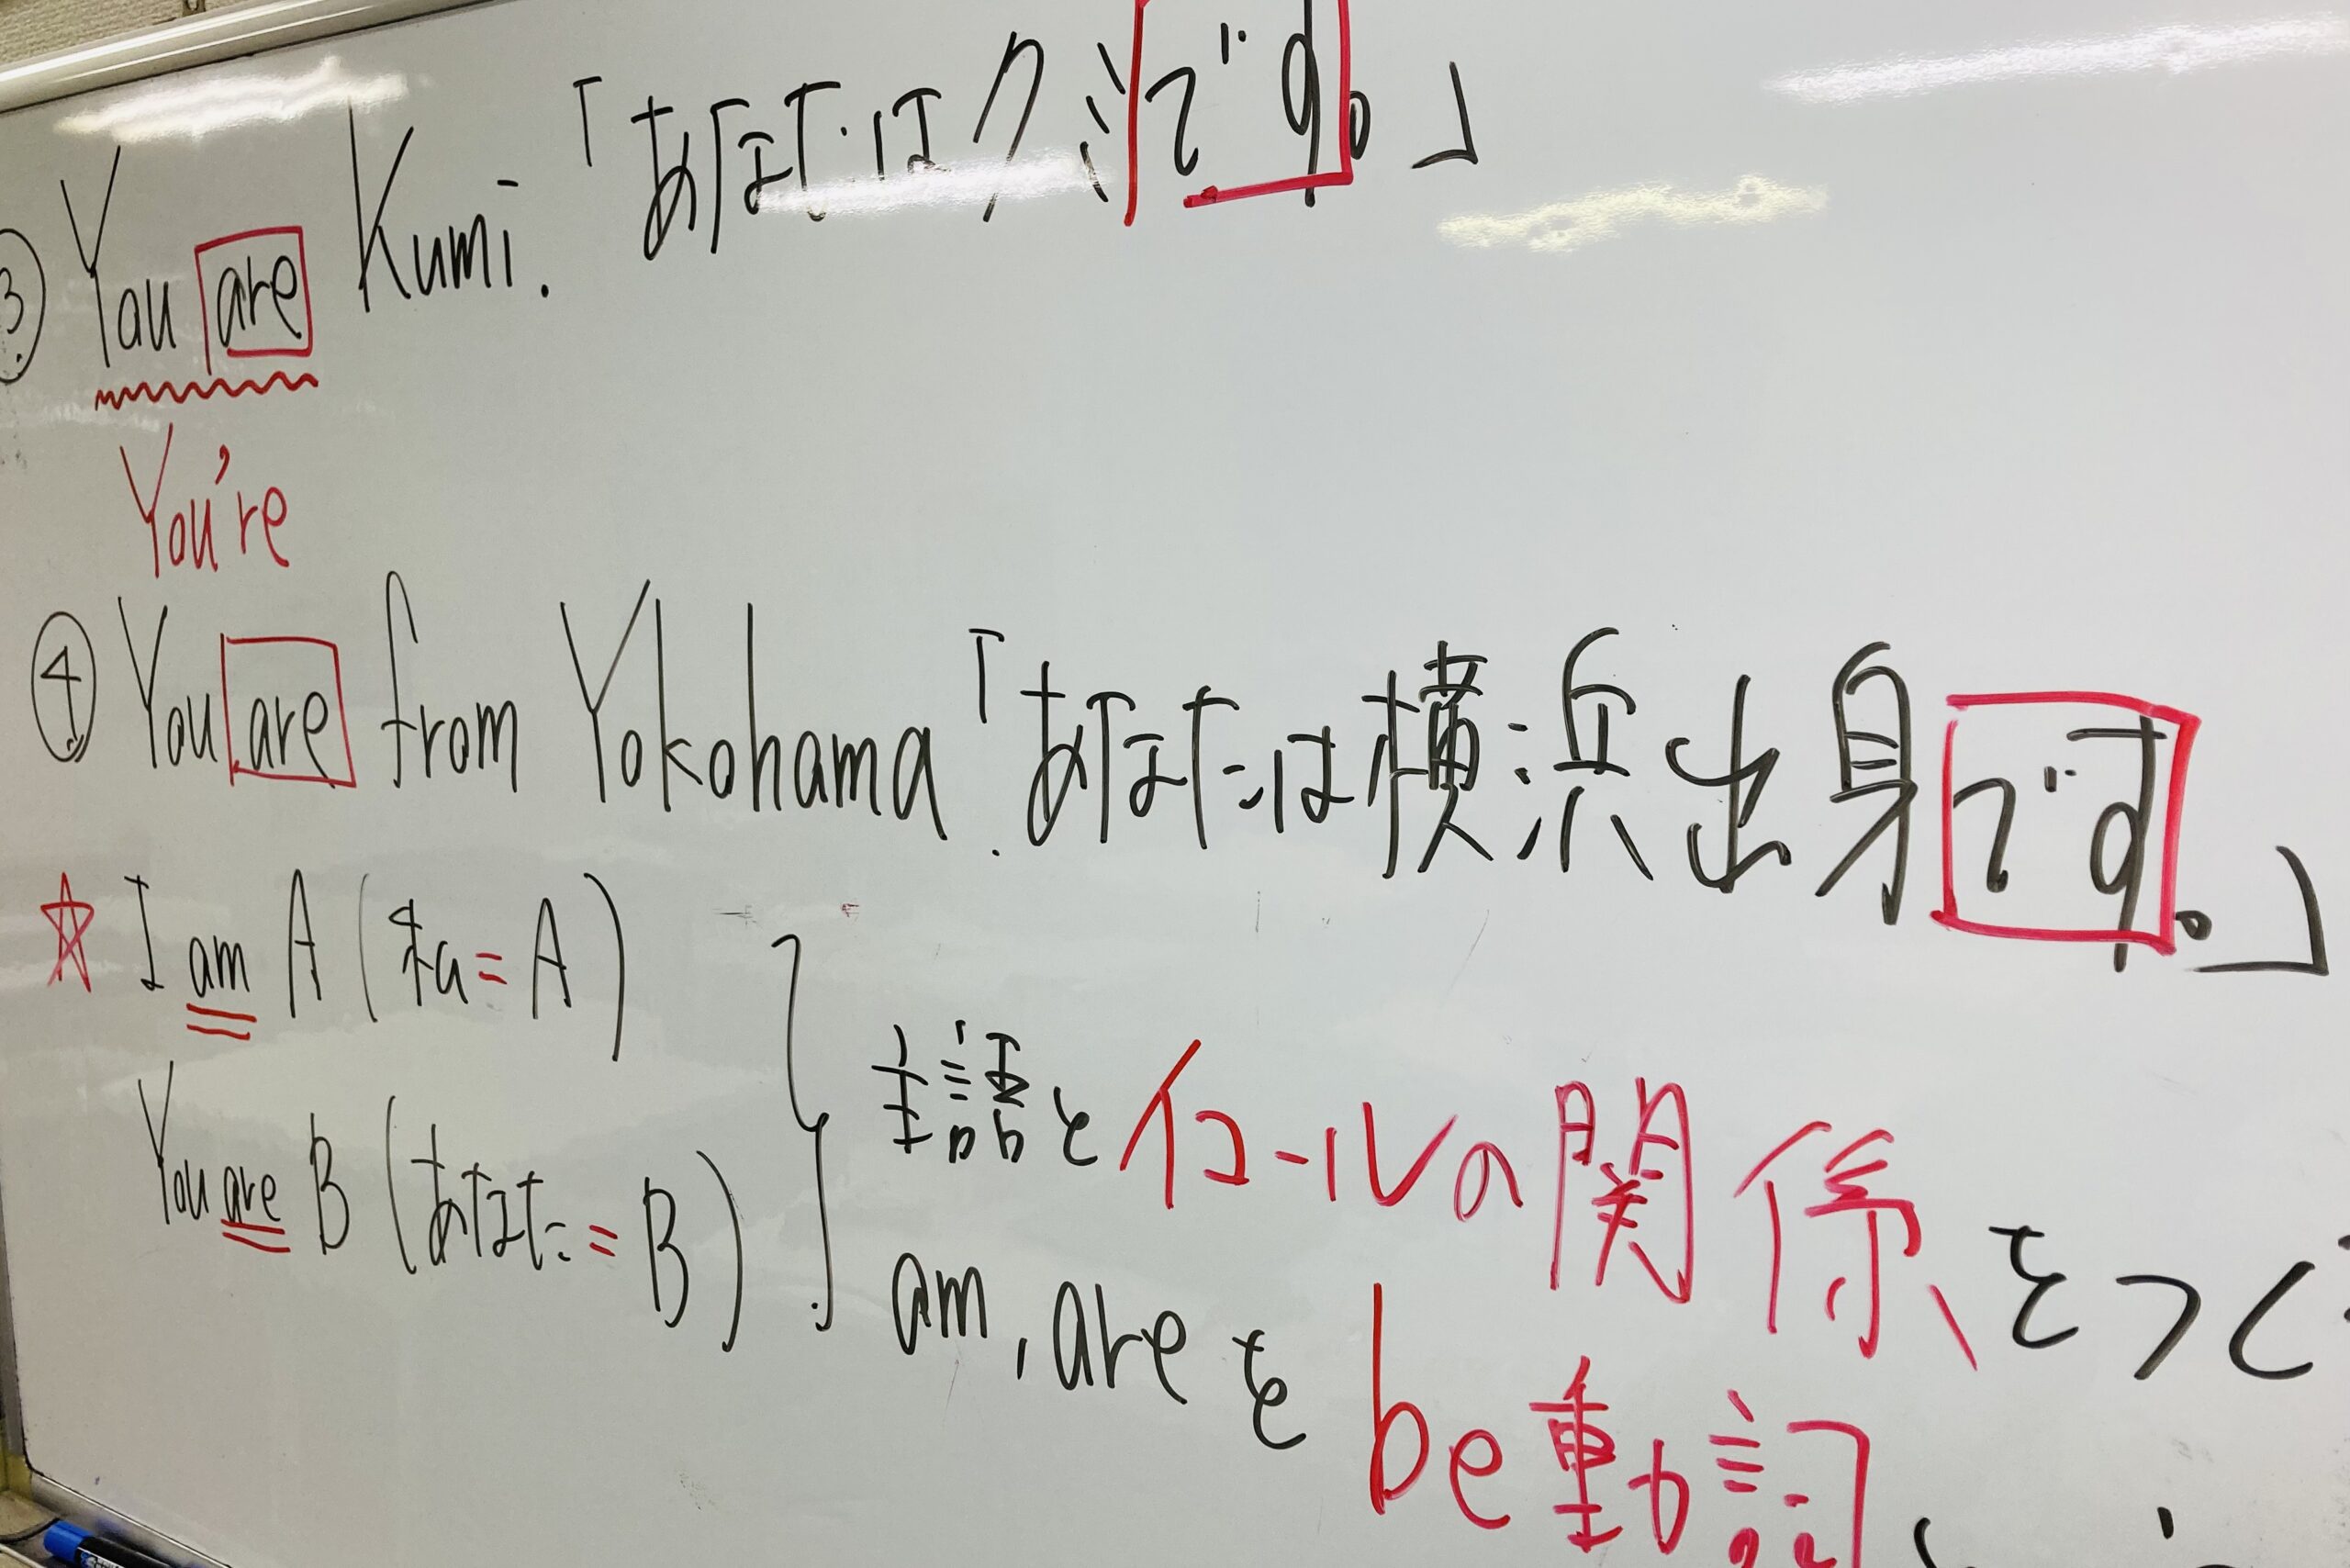 ③ You are Kumi.「あなたはクミです。」
You're
④ You are from Yokohama.「あなたは横浜出身です。」
☆ I am A (私=A)
You are B (あなた=B)
主語とイコールの関係をつく
am, areをbe動詞